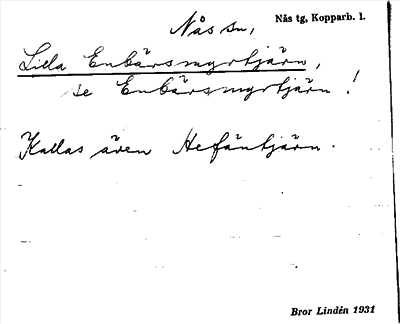 Nås sn, Nås tg, Kopparb. l.
Lilla Enbärsmyrtjärn,
se Enbärsmyrtjärn!
Kallas även Hefäntjärn.
Bror Lindén 1931